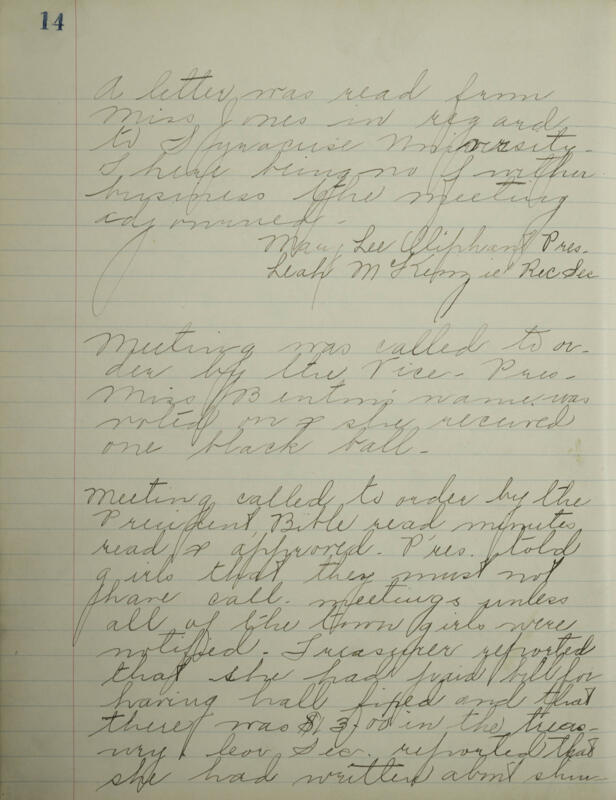 14
A letter was read from
Miss Jones in regard
to Syracuse University.
There being no further
business the meeting
adjourned.
Mary Lee Oliphant Pres.
Leah McKenzie Rec Sec
Meeting was called to or-
der by the Vice-Pres.
Miss Benton's name was
voted on & she received
one black ball.
Meeting called to order by the
President, Bible read minutes
read & approved. Pres. told
girls that they must not
have call-meetings unless
all of the town girls were
notified. Treasurer reported
that she had paid bill for
having hall fixed and that
there was $13.00 in the treas-
ury. Cor. Sec. reported that
she had written about